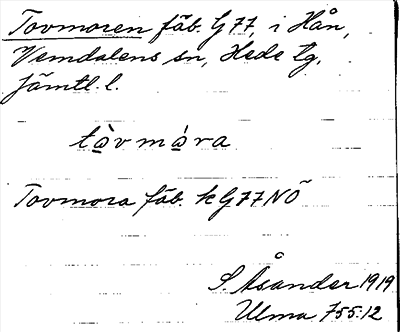 Tovmoren fäb. G 77, i Hån,
Vemdalens sn, Hede tg,
Jämtl. l.
tòvmòra
Tovmora fäb. k G 77 NÖ
S. Åsander 1919
Ulma 755:12